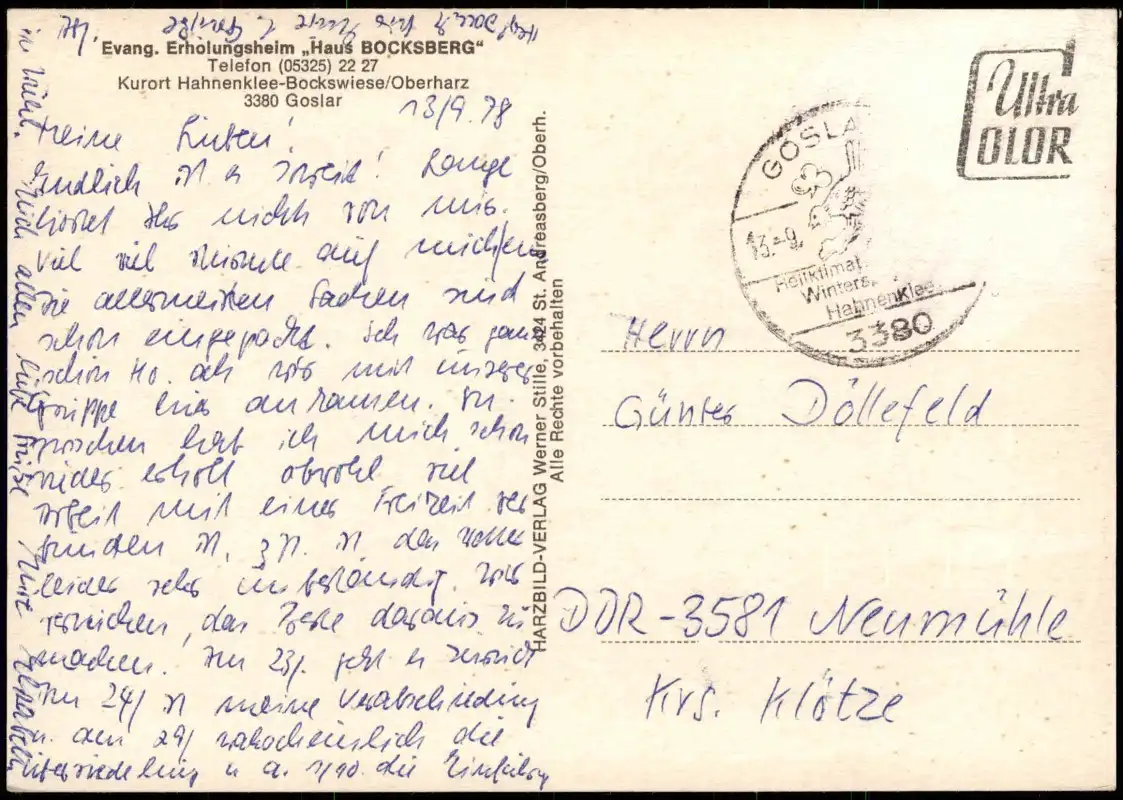 Evang. Erholungsheim „Haus BOCKSBERG"
Telefon (05325) 22 27
Kurort Hahnenklee-Bockswiese/Oberharz
3380 Goslar
13/9.78
Meine Lieben!
Endlich ist es soweit! Lange
hörtet Ihr nichts von mir.
Viel viel stürmte auf mich ein
Die allermeisten Sachen sind
schon eingepackt. Ich war ganz
schön k.o. als wir mit unserer
Gruppe hier ankamen. In-
zwischen hab ich mich schon
wieder erholt obwohl viel
Arbeit mit einer Freizeit ver-
bunden ist, zzt. ist das Wetter
leider sehr unbeständig. Wir
versuchen, das Beste daraus zu
machen! Am 23/. geht es zurück
Am 24/ ist meine Verabschiedung
u. am 29/ wahrscheinlich die
Übersiedelung u a. 1/10. die Einführg
in
Euch allen liebe Grüße
HARZBILD-VERLAG Werner Stille, 3424 St. Andreasberg/Oberh.
Alle Rechte vorbehalten
Ultra
COLOR
GOSLA
13.-9.
Heilklimat.
Winters.
Hahnenklee
3380
Herrn
Günter Döllefeld
DDR-3581 Neumühle
Krs. Klötze